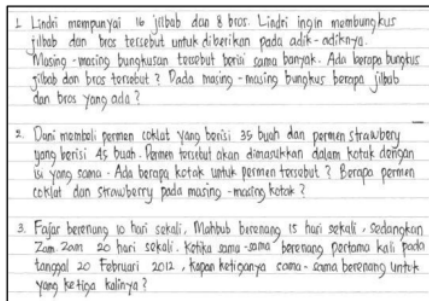 1. Lindri mempunyai 16 jilbab dan 8 bros. Lindri ingin membungkus
jilbab dan bros tersebut untuk diberikan pada adik-adiknya.
Masing-masing bungkusan tersebut berisi sama banyak. Ada berapa bungkus
jilbab dan bros tersebut? Pada masing-masing bungkus berapa jilbab
dan bros yang ada?
2. Dani membeli permen coklat yang berisi 35 buah dan permen strawbery
yang berisi 45 buah. Permen tersebut akan dimasukkan dalam kotak dengan
isi yang sama. Ada berapa kotak untuk permen tersebut? Berapa permen
coklat dan strawberry pada masing-masing kotak?
3. Fajar berenang 10 hari sekali, Mahbub berenang 15 hari sekali, sedangkan
Zam-Zam 20 hari sekali. Ketika sama-sama berenang pertama kali pada
tanggal 20 Februari 2012, kapan ketiganya sama-sama berenang untuk
yang ketiga kalinya?